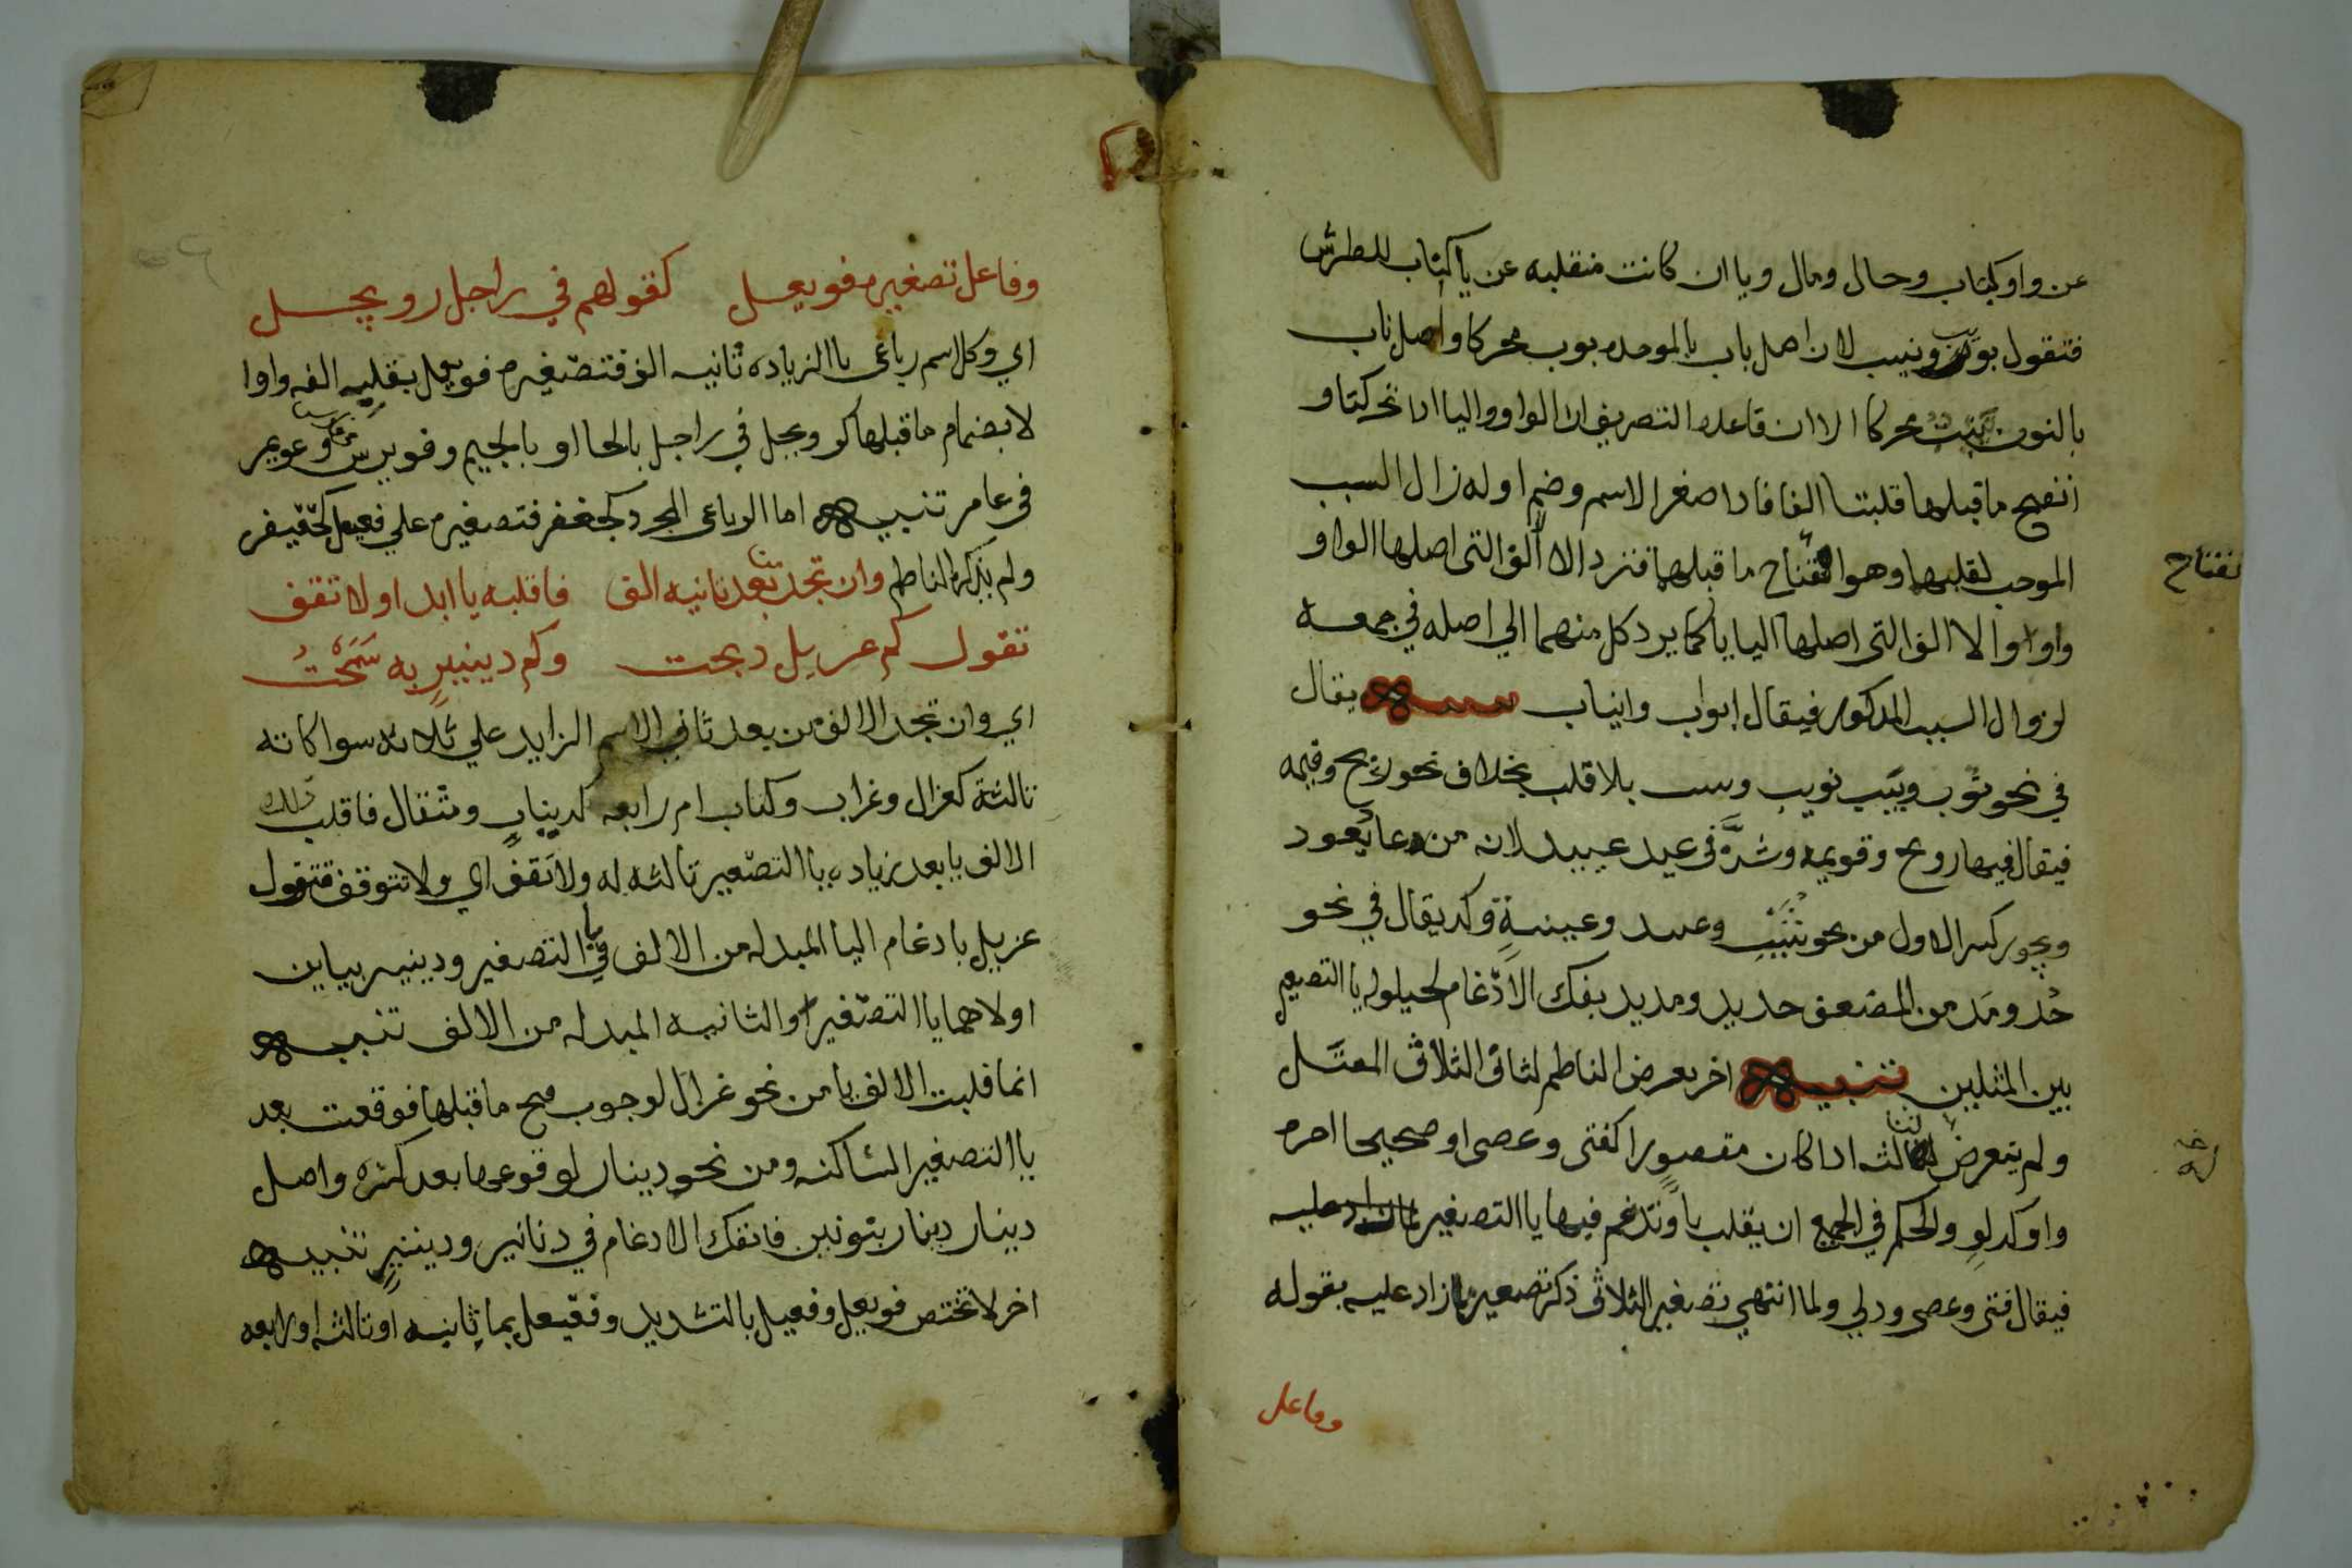 عن واو كباب وحال ومال ويا ان كانت منقلبه عن يا كناب للطرش
فتقول بويب ونييب لان اصل باب بالموحده بوب محركا واصل ناب
بالنون نيب محركا الا ان قاعده التصريف ان الواو واليا اذا تحركتا و
انفتح ما قبلهما قلبتا الفا فاذا صغر الاسم وضم اوله زال السبب
الموجب لقلبهما وهو انفتاح ما قبلهما فترد الالف التي اصلها الواو
واوا والالف التي اصلها اليا يا كما يرد كل منهما الي اصله في جمعه
لزوال السبب المذكور فيقال ابواب وانياب تنبيه يقال
في نحو ثوب وبيت ثويب وبييت بلا قلب بخلاف نحو ريح وقيمه
فيقال فيهما رويح وقويمه وشذ في عيد عييد لانه من عاد يعود
ويجوز كسر الاول من نحو شييخ وعييد وعيينة وكذا يقال في نحو
خد ومد من المضعف خديد ومديد بفك الادغام لحيلوله يا التصغير
بين المثلين تنبيه اخر تعرض الناظم لثاني الثلاثي المعتل
ولم يتعرض لثالثه اذا كان مقصورا كفتى وعصى او صحيحا اخره
واو كدلو والحكم في الجميع ان يقلب يا وتدغم فيها يا التصغير
فيقال فتي وعصي ودلي ولما انتهي تصغير الثلاثي ذكر تصغير ما زاد عليه بقوله
وفاعل
انفتاح
وفاعل تصغيره فويعل كقولهم في راجل رويجل
اي وكل اسم رباعي بالزياده ثانيه الف فتصغيره فويعل بقلب الفه واوا
لانضمام ما قبلها كرويجل في راجل بالحا او بالجيم وفويرس في فارس وعويمر
في عامر تنبيه اما الرباعي المجرد كجعفر فتصغيره علي فعيعل كجعيفر
ولم يذكره الناظم وان تجد من بعد ثانيه الف فاقلبه يا ابدا ولا تقف
تقول كم غزيل ذبحت وكم دينير به سمحت
اي وان تجد الالف من بعد ثاني الاسم الزايد علي ثلاثه سوا كانت
ثالثة كغزال وغراب وكتاب ام رابعه كدينار ومثقال فاقلب تلك
الالف يا بعد زياده يا التصغير ثالثه له ولا تقف اي ولا تتوقف فتقول
غزيل بادغام اليا المبدله من الالف في يا التصغير ودينير بياين
اولاهما يا التصغير والثانيه المبدله من الالف تنبيه
انما قلبت الالف يا من نحو غزال لوجوب فتح ما قبلها فوقعت بعد
يا التصغير الساكنه ومن نحو دينار لوقوعها بعد كسره واصل
دينار دنار بنونين فانفك الادغام في دنانير ودينير تنبيه
اخر لا تختص فويعل وفعيل بالتشديد وفعيعل بما ثانيه او ثالثه او رابعه